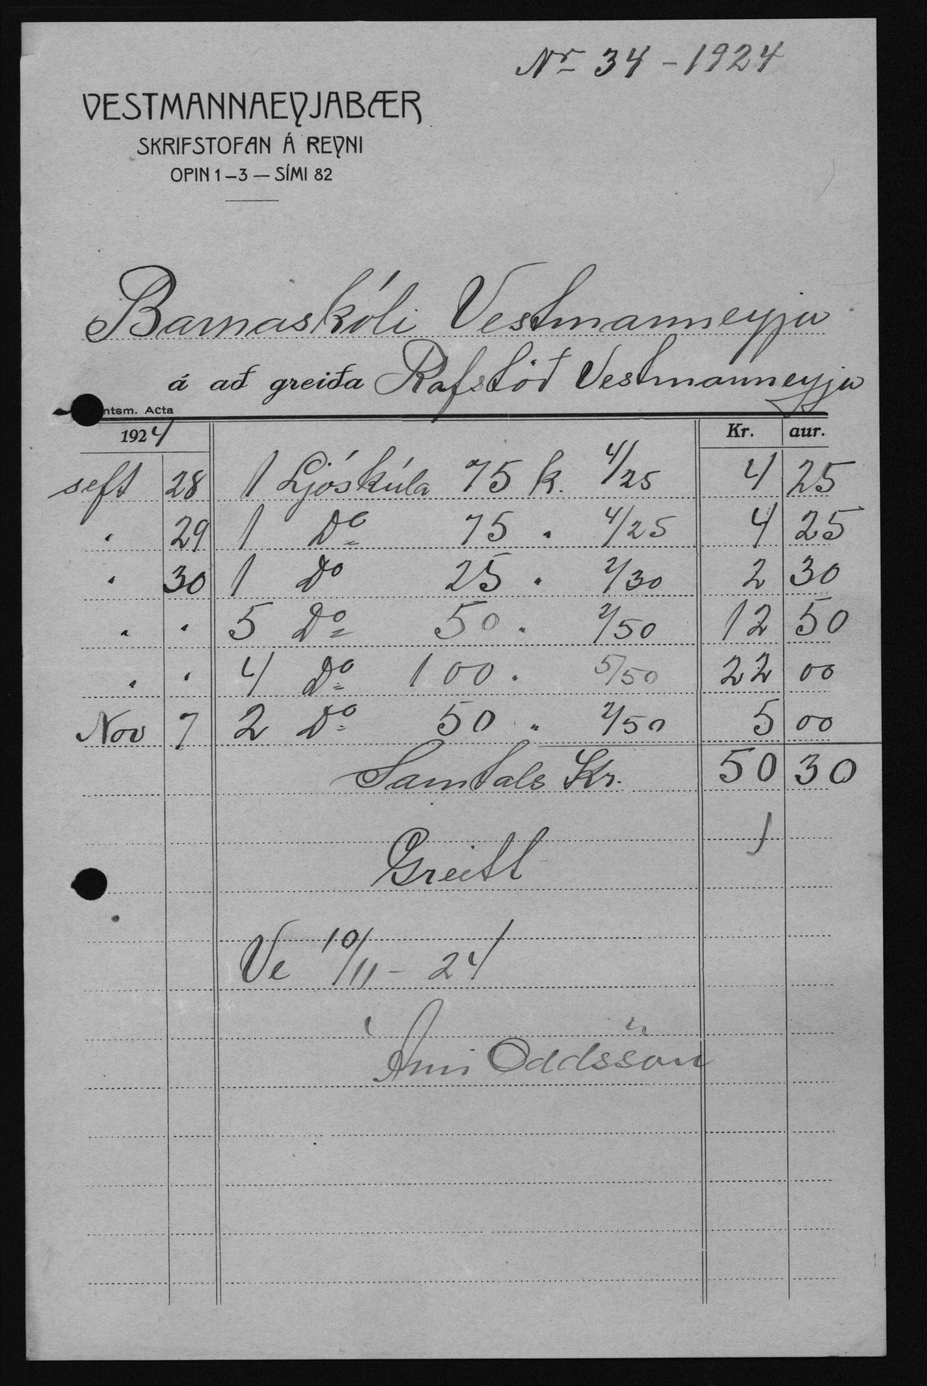 Nr 34 - 1924
VESTMANNAEYJABÆR
SKRIFSTOFAN Á REYNI
OPIN 1–3 — SÍMI 82
Barnaskóli Vestmanneyja
á að greiða Rafstöð Vestmanneyja
ntsm. Acta
1924 Kr. aur.
seft 28 1 Ljóskúla 75 k. 4/25 4 25
" 29 1 Do 75 " 4/25 4 25
" 30 1 Do 25 " 2/30 2 30
" " 5 Do 50 " 2/50 12 50
" " 4 Do 100 " 5/50 22 00
Nov 7 2 Do 50 " 2/50 5 00
Samtals Kr. 50 30
Greitt
Ve 10/11 - 24
Árni Oddsson